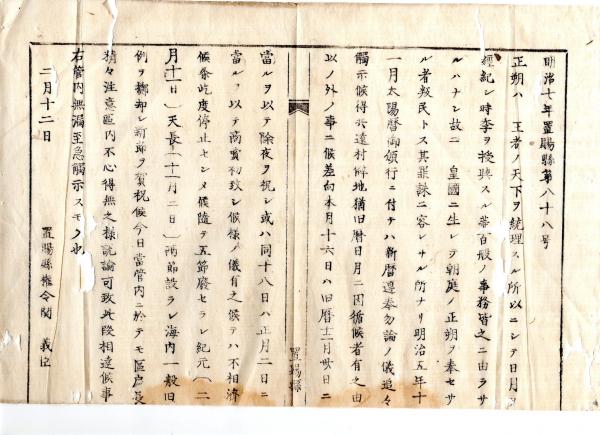 明治七年置賜縣第八十八号
正朔ハ　王者ノ天下ヲ統理スル所以ニシテ日月ヲ
經紀シ時季ヲ授與スル蓋百般ノ事務皆之ニ由ラサ
ルハナシ故ニ　皇國ニ生レテ朝庭ノ正朔ヲ奉セサ
ル者叛民トス其罪誅ニ容レサル所ナリ明治五年十
一月太陽暦御頒行ニ付テハ新暦遵奉勿論ノ儀追々
觸示候得共遠村僻地猶旧暦日月ニ因循候者有之由
以ノ外ノ事ニ候差向本月十六日ハ旧暦十二月卅日ニ
置賜縣
當ルヲ以テ除夜ヲ祝シ或ハ同十八日ハ正月二日ニ
當ルヲ以テ商賣初致シ候様ノ儀有之候テハ不相濟
候条屹度停止セシメ候隨テ五節廢セラレ紀元〔二
月十一日〕天長〔十一月三日〕両節設ラレ海内一般旧
例ヲ擲却シ新節ヲ賀祝候今日當管内ニ於テモ區戸長
精々注意區内不心得無之様説諭可致此段相達候事
右管内無漏至急觸示スモノ也
二月十二日
置賜縣権令関　義臣